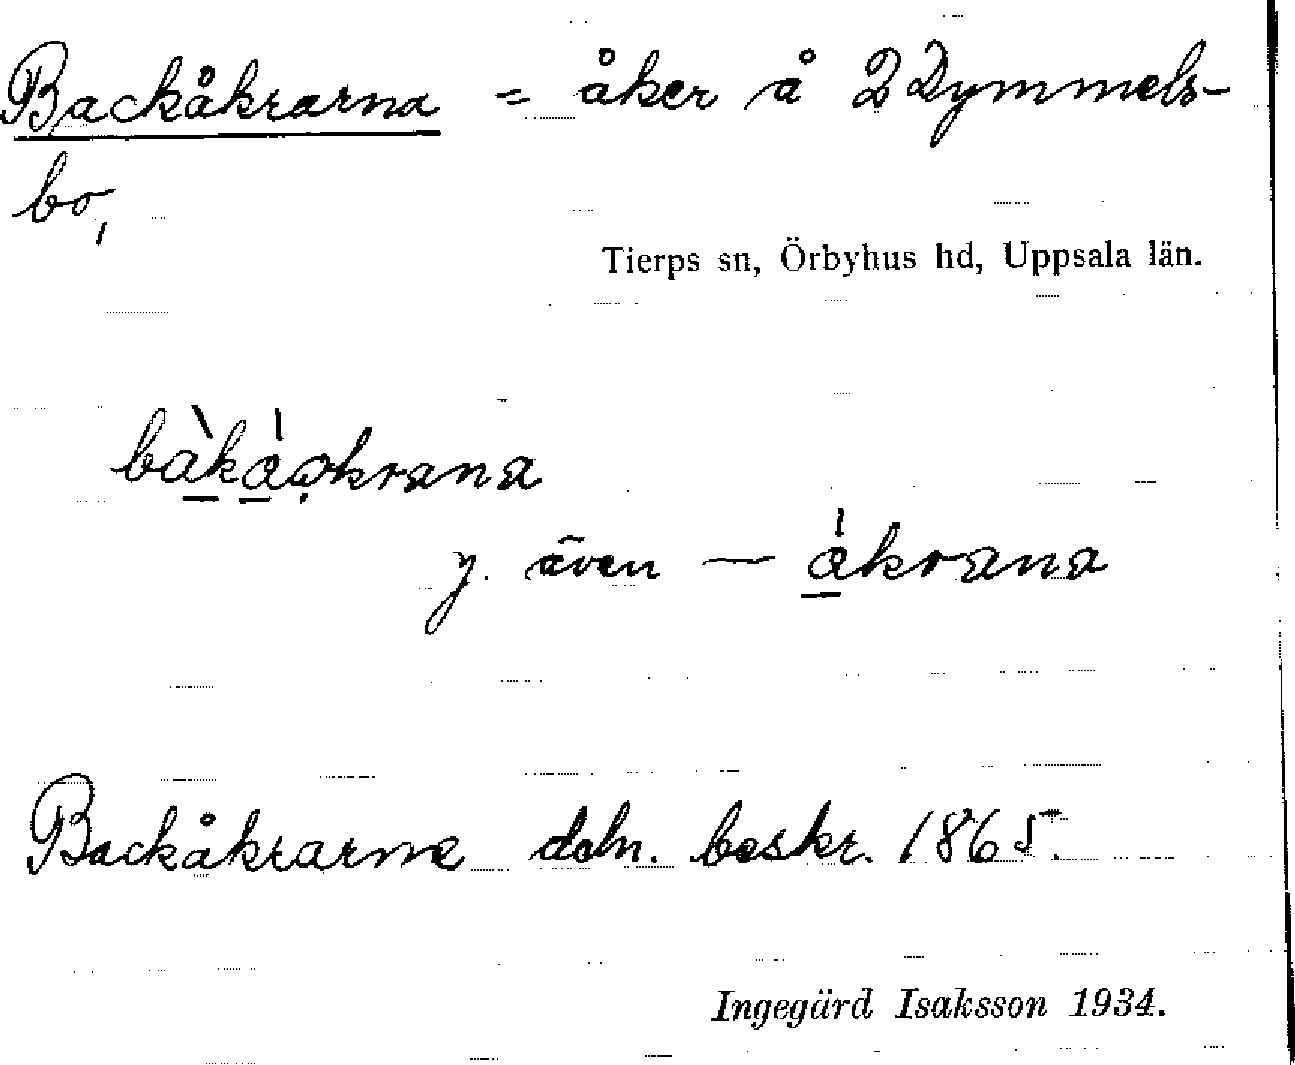 Backåkrarna = åker å 2 Dymmels-
bo,
Tierps sn, Örbyhus hd, Uppsala län.
y. även —
Backåkrarne dcln. beskr. 1865.
Ingegärd Isaksson 1934.